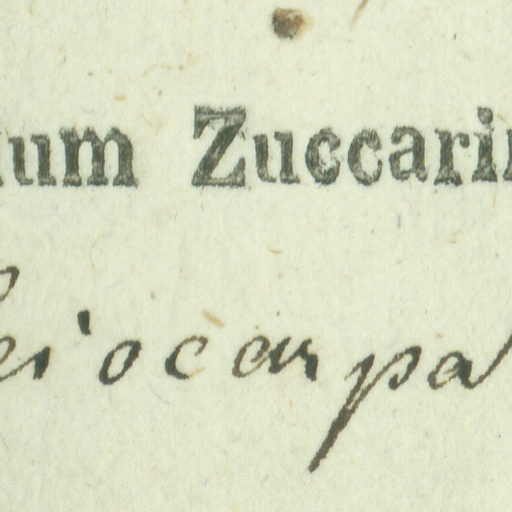 um Zuccarin
eiocarpa